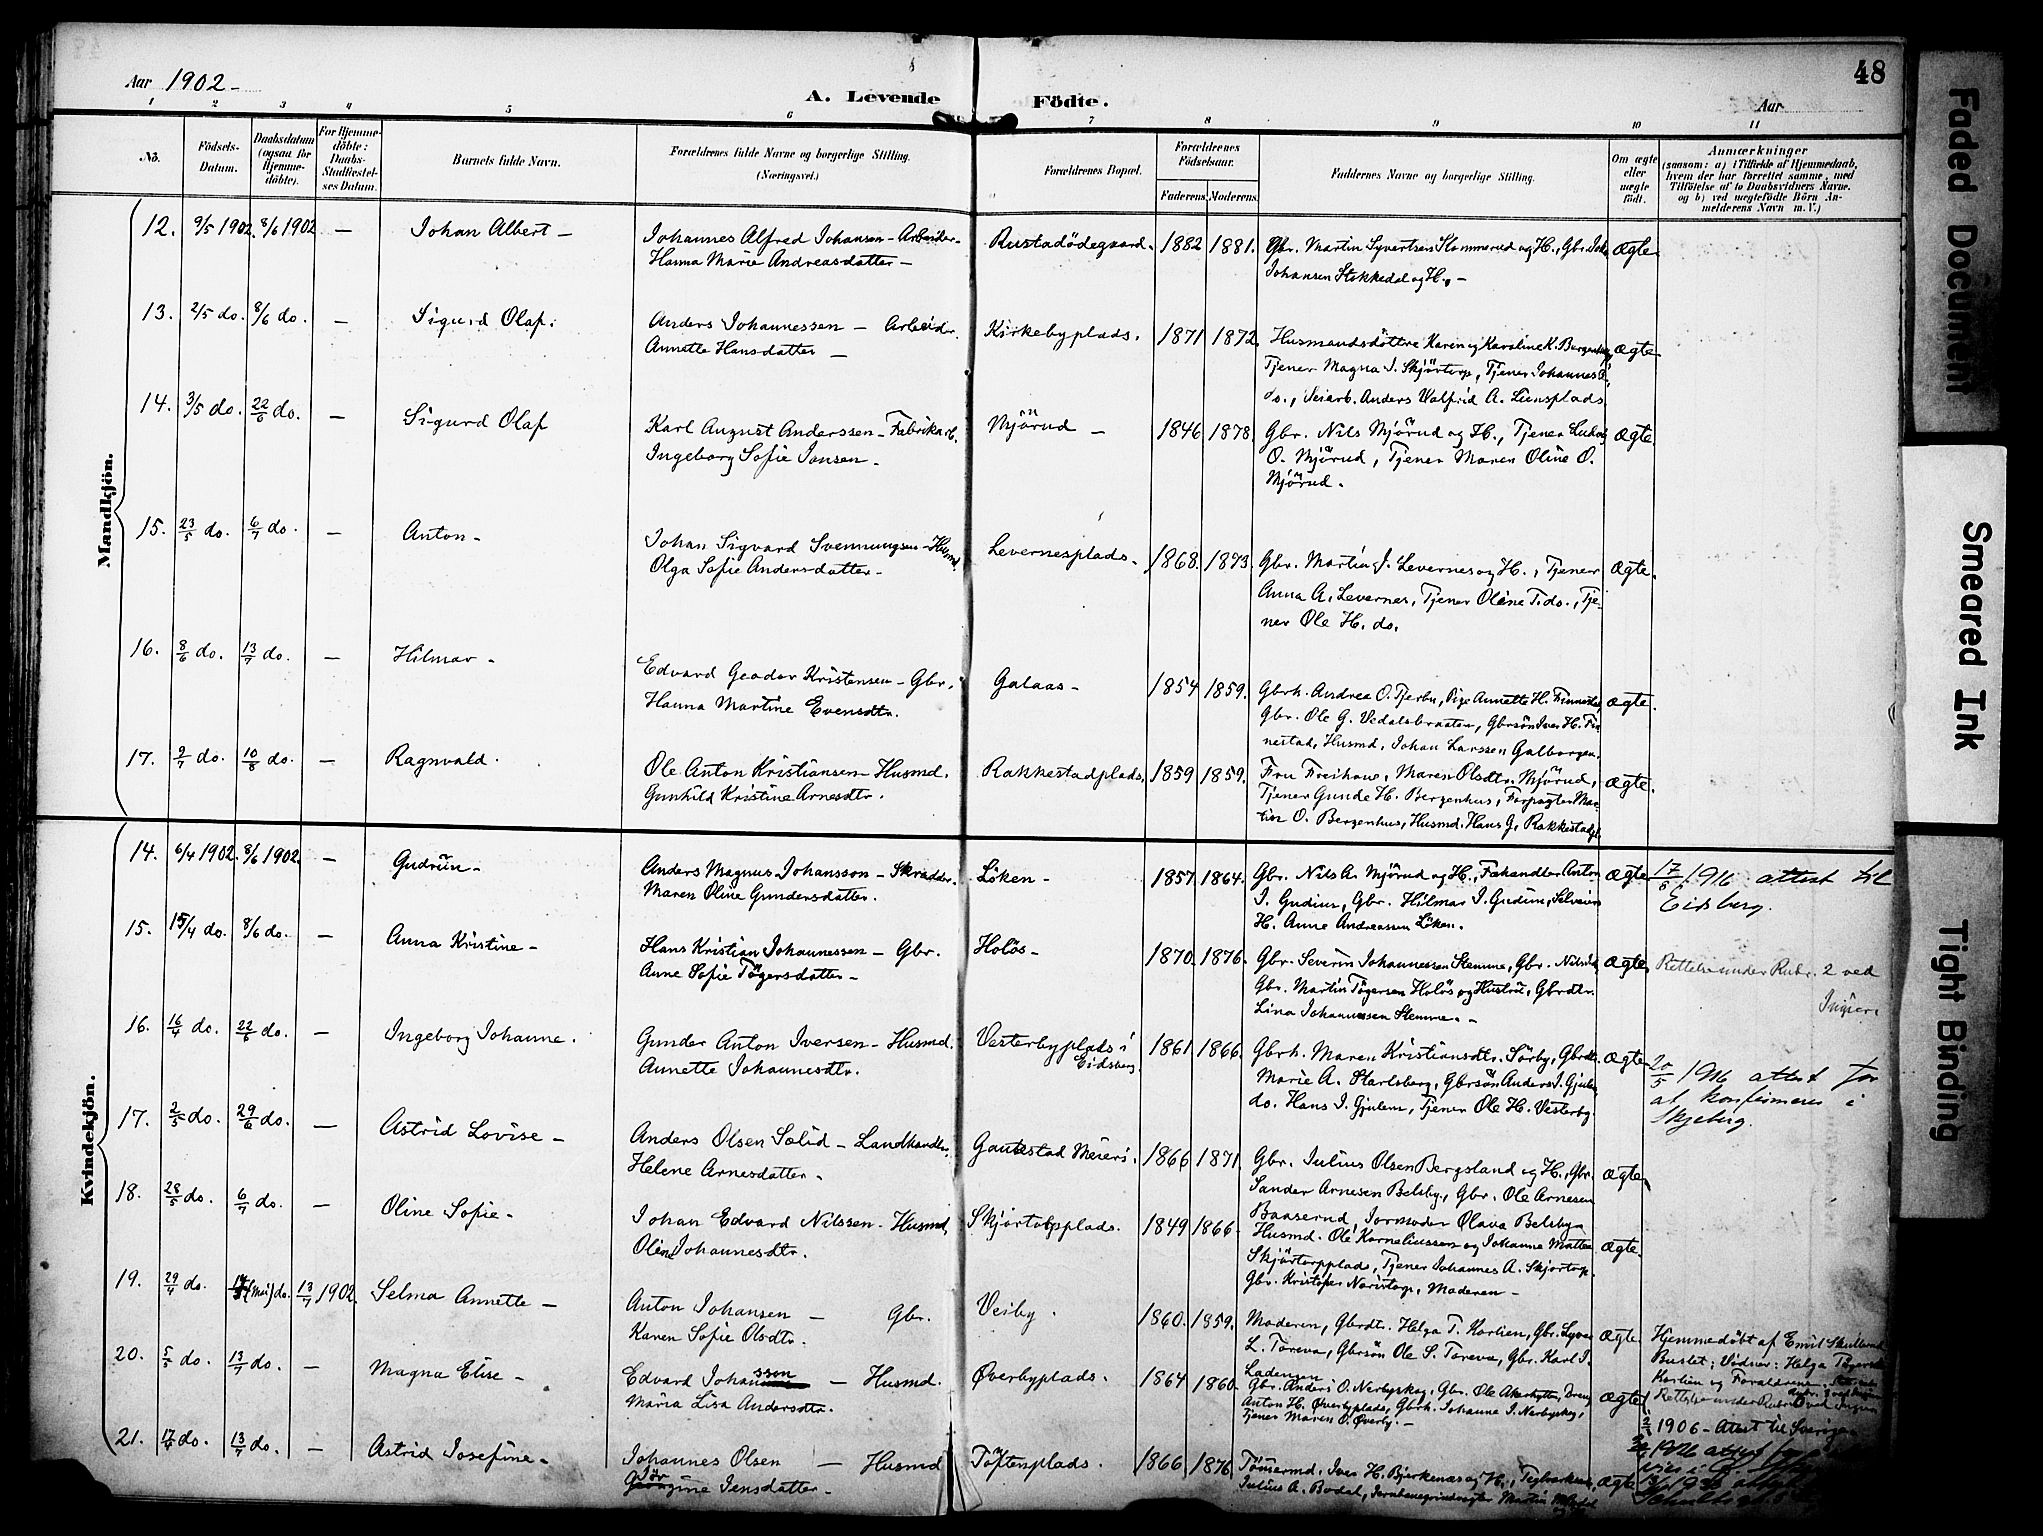 Aar 1902 -
A. Levende Födte.
Aar
48
1 2 3 4 5 6 7 8 9 10 11
No.
Födsels-Datum.
Daabsdatum (ogsaa for Hjemme-döbte).
For Hjemme-döbte: Daabs-Stadfæstel-ses Datum.
Barnets fulde Navn.
Forældrenes fulde Navne og borgerlige Stilling.
(Næringsvei.)
Forældrenes Bopæl.
Forældrenes Födselsaar.
Faderens. Moderens.
Faddernes Navne og borgerlige Stilling.
Om ægte eller uægte födt.
Anmærkninger
(saasom: a) i Tilfælde af Hjemmedaab,
hvem der har forrettet samme, med
Tilföielse af to Daabsvidners Navne.
og b) ved uægtefödte Börn An-
melderens Navn m. V.)
Mandkjön.
12. 9/5 1902. 8/6 1902 — Johan Albert —
Johannes Alfred Johansen — Arbeider.
Hanna Marie Andreasdatter —
Rustadödegaard. 1882 1881.
Gbr. Martin Syvertsen Slommerud og H., Gbr.
Johansen Stikkedal og H. —
Ægte.
13. 2/5 do. 8/6 do. — Sigurd Olaf.
Anders Johannessen — Arbeider.
Annette Hansdatter —
Kirkebyplads. 1871 1872.
Husmandsdöttre Karen og Karoline K.
Tjener Magna J. Skjörtorp, Tjener Johannes
do., Veiarb. Anders Valfrid A. Liensplads.
Ægte.
14. 3/5 do. 22/6 do. — Sigurd Olaf
Karl August Anderssen — Fabrikarb.
Ingeborg Sofie Jansen.
Mjörud — 1846 1878.
Gbr. Nils Mjörud og H., Tjener
O. Mjörud, Tjener Maren Oline O.
Mjörud.
Ægte.
15. 23/5 do. 6/7 do. — Anton —
Johan Sigvard Svenningsen — Husmd.
Olga Sofie Andersdatter —
Levernesplads. 1868. 1873.
Gbr. Martin J. Levernes og H., Tjener
Anna A. Levernes, Tjener Oline T. do., Tje-
ner Ole H. do.
Ægte.
16. 8/6 do. 13/7 do. — Hilmar —
Edvard Geodor Kristensen — Gbr.
Hanna Martine Evensdtr.
Galaas — 1854 1859.
Gbrk. Andrea O. Tjerbu, Pige Annette H. Finnestad,
Gbr. Ole G. Vedalsbraaten, Gbrsön Iver H. Fin-
nestad, Husmd. Johan Larssen Galborgen.
Ægte.
17. 9/7 do. 10/8 do. — Ragnvald.
Ole Anton Kristiansen — Husmd.
Gunhild Kristine Arnesdtr.
Rakkestadplads. 1859 1859.
Fru Freihow, Maren Olsdtr. Mjörud,
Tjener Gunde H. Bergenhus, Forpagter Mar-
tin O. Bergenhus, Husmd. Hans G. Rakkestadpl.
Ægte.
Kvindekjön.
14. 6/4 1902. 8/6 1902. — Gudrun —
Anders Magnus Johansson — Skrædder.
Maren Oline Gundersdatter.
Löken — 1857 1864.
Gbr. Nils A. Mjörud og H., Fehandler Anton
I. Gudim, Gbr. Hilmar I. Gudim, Selveier
H. Anne Andreassen Löken.
Ægte
17/8 1916 attest til
Eidsberg.
15. 15/4 do. 8/6 do. — Anna Kristine —
Hans Kristian Johannessen — Gbr.
Anne Sofie Tögersdatter —
Holös — 1870. 1876.
Gbr. Severin Johannessen Stemme, Gbr.
Gbr. Martin Tögersen Holös og Hustru, Gbrdtr.
Lina Johannessen Stemme. —
Ægte.
Rettelse under Rubr. 2 ved
16. 16/4 do. 22/6 do. — Ingeborg Johanne.
Gunder Anton Iversen — Husmd.
Annette Johannesdtr.
Vesterbyplads i
Eidsberg. 1861 1866.
Gbrk. Maren Kristiansdtr. Sörby, Gbrdtr.
Marie A. Karlsborg, Gbrsön Anders I. Gjulem
do. Hans I. Gjulem, Tjener Ole H. Vesterby.
Ægte
20/5 1916 attest for
at konfirmeres i
Skjeberg.
17. 2/5 do. 29/6 do. — Astrid Lovise —
Anders Olsen Sælid — Landhandler.
Helene Arnesdatter.
Gautestad Meieri. 1866 1871.
Gbr. Julius Olsen Bergsland og H., Gbr.
Sander Arnesen Belsby, Gbr. Ole Arnesen
Baaserud, Jormoder Olava Belsby.
Ægte.
18. 28/5 do. 6/7 do. — Oline Sofie —
Johan Edvard Nilssen — Husmd.
Oline Johannesdtr.
Skjörtorpplads. 1849 1866.
Husmd. Ole Korneliussen og Johanne Mattea
Skjörtorpplads, Tjener Johannes A. Skjörtorp.
Gbr. Kristofer Noristorp, Moderen —
Ægte.
19. 29/4 do. (Mai) do. 13/7 1902. Selma Annette —
Anton Johansen — Gbr.
Karen Sofie Olsdtr.
Veiby. 1860. 1859.
Moderen, Gbrdtr. Helga T. Kortien, Gbr.
L. Toreva, Gbrsön Ole S. Toreva, Gbr. Karl I.
Ladengen
Ægte.
Hjemmedöbt af Emil
Vidner: Helga
Kortien og Forældrene.
20. 5/5 do. 13/7 do. — Magna Elise —
Edvard Johanssen — Husmd.
Maria Lisa Andersdtr.
Øverbyplads. 1864 1860.
Gbr. Anders O. Nerbyskog, Gbr. Ole Akerhytten, Dreng
Anton H. Øverbyplads, Gbrk. Johanne I. Nerbyskog,
Tjener Maren O. Øverby. —
Ægte
Rettelse under Rubr.
1906 — Attest til Sverige.
21. 17/6 do. 13/7 do. — Astrid Josefine —
Johannes Olsen — Husmd
Jörgine Jensdatter —
Töftenplads. 1866 1876
Tömermd. Iver H. Bjerkenæs og H., Teglverkseier
Julius A. Bodal, Jernbanegrindvogter Martin
Ægte
1926 attest
Faded Document
Smeared Ink
Tight Binding